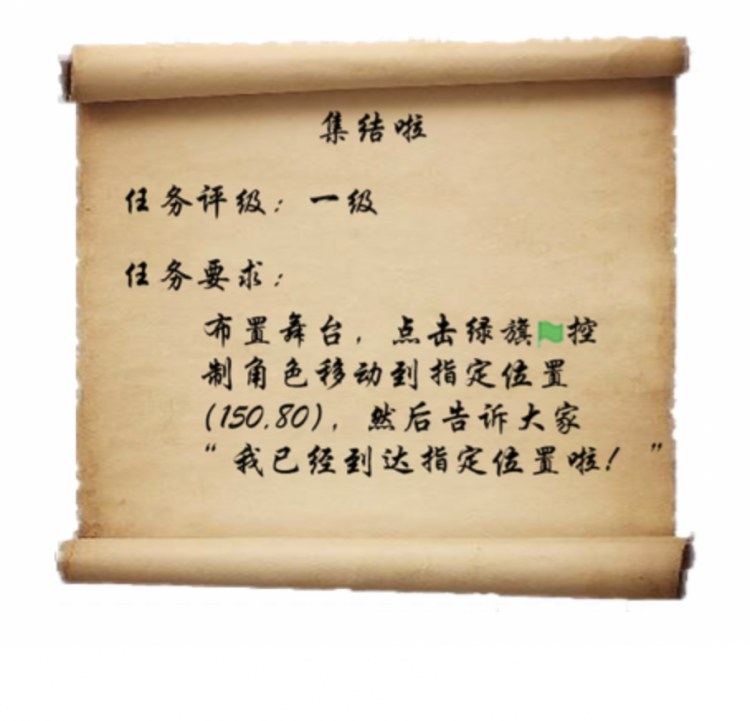 集结啦
任务评级：一级
任务要求：
布置舞台，点击绿旗控
制角色移动到指定位置
(150,80)，然后告诉大家
“我已经到达指定位置啦！”